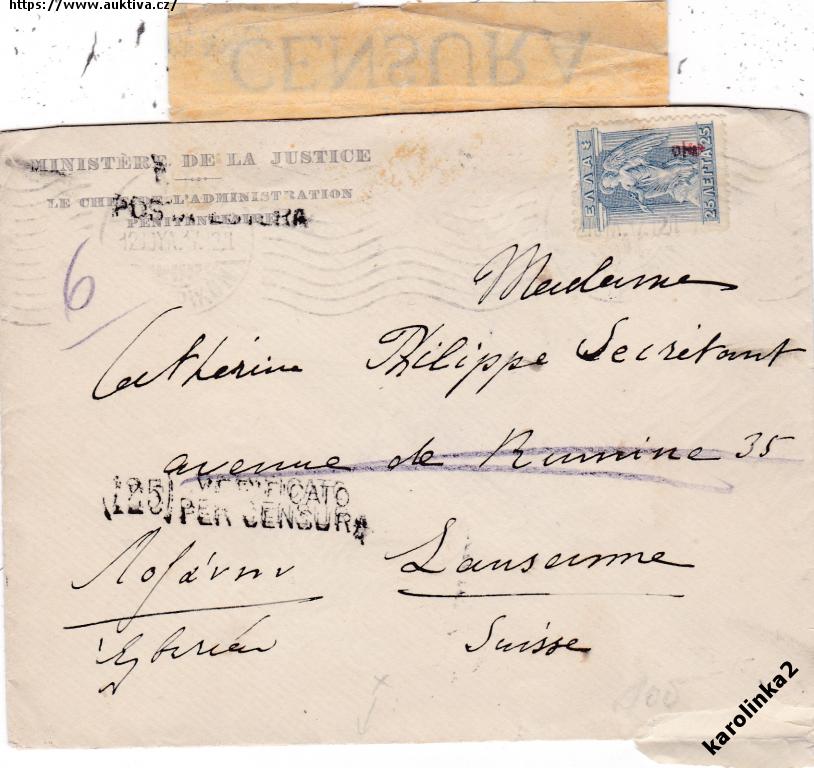 https://www.auktiva.cz/
CENSURA
MINISTÈRE DE LA JUSTICE
LE CHEF DE L'ADMINISTRATION
PÉNITENTIAIRE
ΕΛΛΑΣ
25 ΛΕΠΤΑ 25
6
Madame
Cathérine Philippe Secrétant
avenue de Rumine 35
(125) VERIFICATO
PER CENSURA
Λοζάννην Lausanne
Suisse
karolinka2